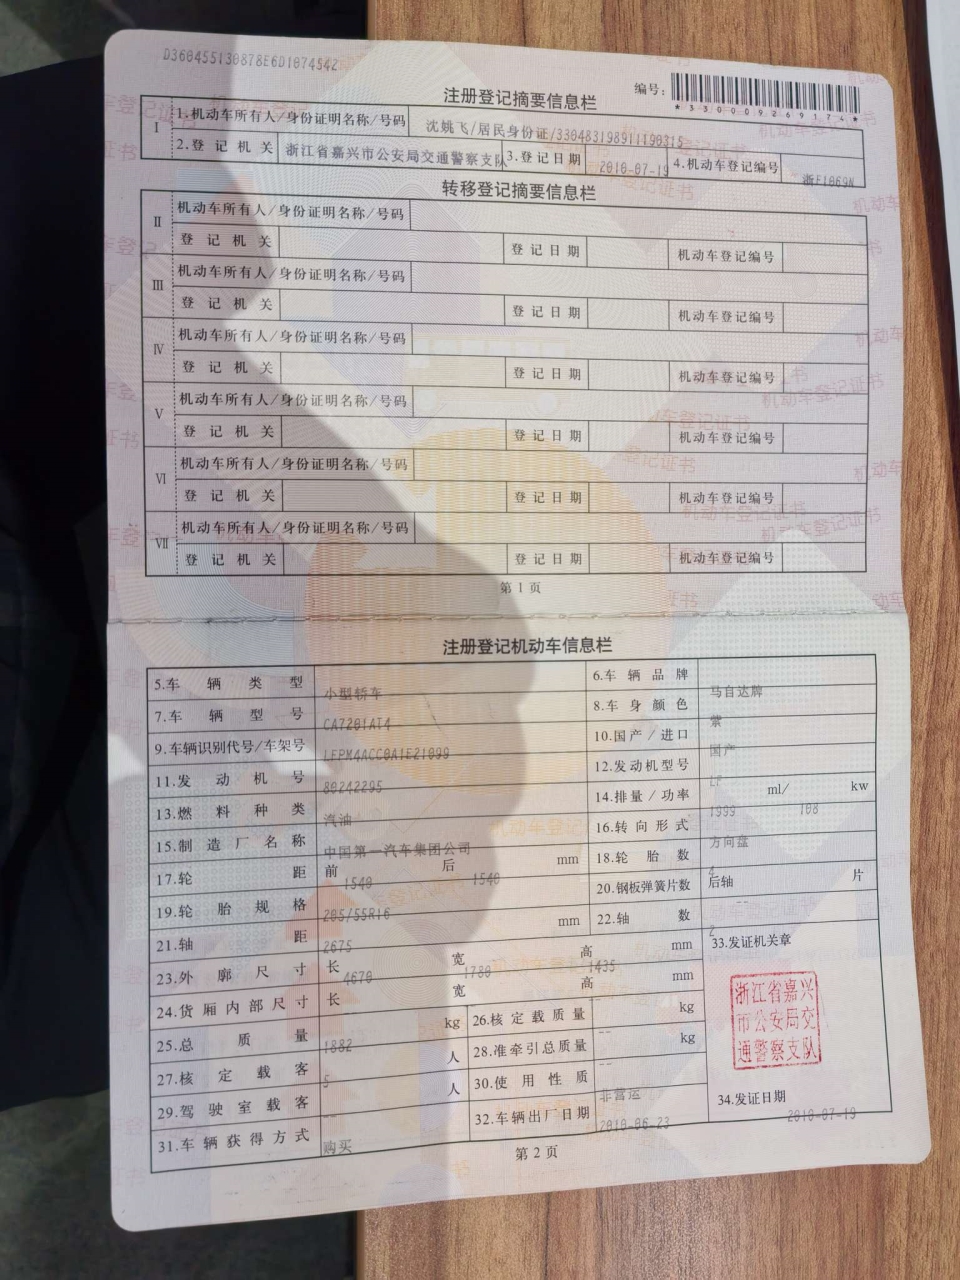 D360455130878E6D1074542
编号：
*330009269174*
注册登记摘要信息栏
I 1.机动车所有人/身份证明名称/号码 沈姚飞/居民身份证/330483198911190315
2.登记机关 浙江省嘉兴市公安局交通警察支队 3.登记日期 2010-07-19 4.机动车登记编号 浙F1069N
转移登记摘要信息栏
II 机动车所有人/身份证明名称/号码
登记机关 登记日期 机动车登记编号
III 机动车所有人/身份证明名称/号码
登记机关 登记日期 机动车登记编号
IV 机动车所有人/身份证明名称/号码
登记机关 登记日期 机动车登记编号
V 机动车所有人/身份证明名称/号码
登记机关 登记日期 机动车登记编号
VI 机动车所有人/身份证明名称/号码
登记机关 登记日期 机动车登记编号
VII 机动车所有人/身份证明名称/号码
登记机关 登记日期 机动车登记编号
第1页
注册登记机动车信息栏
5.车辆类型 小型轿车 6.车辆品牌 马自达牌
7.车辆型号 CA7201AT4 8.车身颜色 紫
9.车辆识别代号/车架号 LFPM4ACC0A1E21099 10.国产/进口 国产
11.发动机号 80242295 12.发动机型号 LF
13.燃料种类 汽油 14.排量/功率 1999 ml/ 108 kw
15.制造厂名称 中国第一汽车集团公司 16.转向形式 方向盘
17.轮距 前 1540 后 1540 mm 18.轮胎数 4
19.轮胎规格 205/55R16 20.钢板弹簧片数 后轴 -- 片
21.轴距 2675 mm 22.轴数 2
23.外廓尺寸 长 4670 宽 1780 高 1435 mm 33.发证机关章
24.货厢内部尺寸 长 宽 高 -- mm
浙江省嘉兴
市公安局交
通警察支队
25.总质量 1882 kg 26.核定载质量 -- kg
27.核定载客 5 人 28.准牵引总质量 -- kg
29.驾驶室载客 -- 人 30.使用性质 非营运
31.车辆获得方式 购买 32.车辆出厂日期 2010-06-23 34.发证日期 2010-07-19
第2页